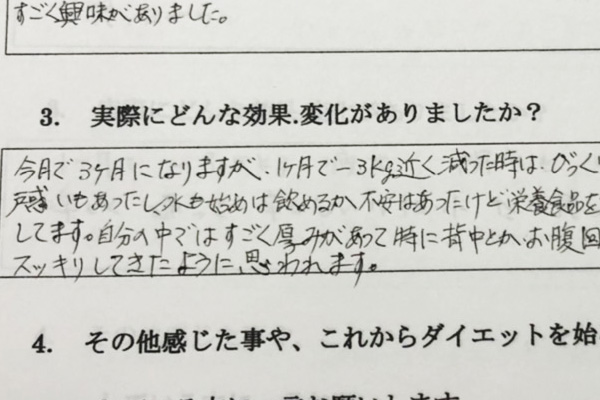 すごく興味がありました。
3. 実際にどんな効果.変化がありましたか？
今月で3ヶ月になりますが、1ヶ月で−3kg近く減った時は、びっくり
戸惑いもあったし、水も始めは飲めるか不安はあったけど栄養食品を
してます。自分の中ではすごく厚みがあって特に背中とか、お腹回
スッキリしてきたように思われます。
4. その他感じた事や、これからダイエットを始